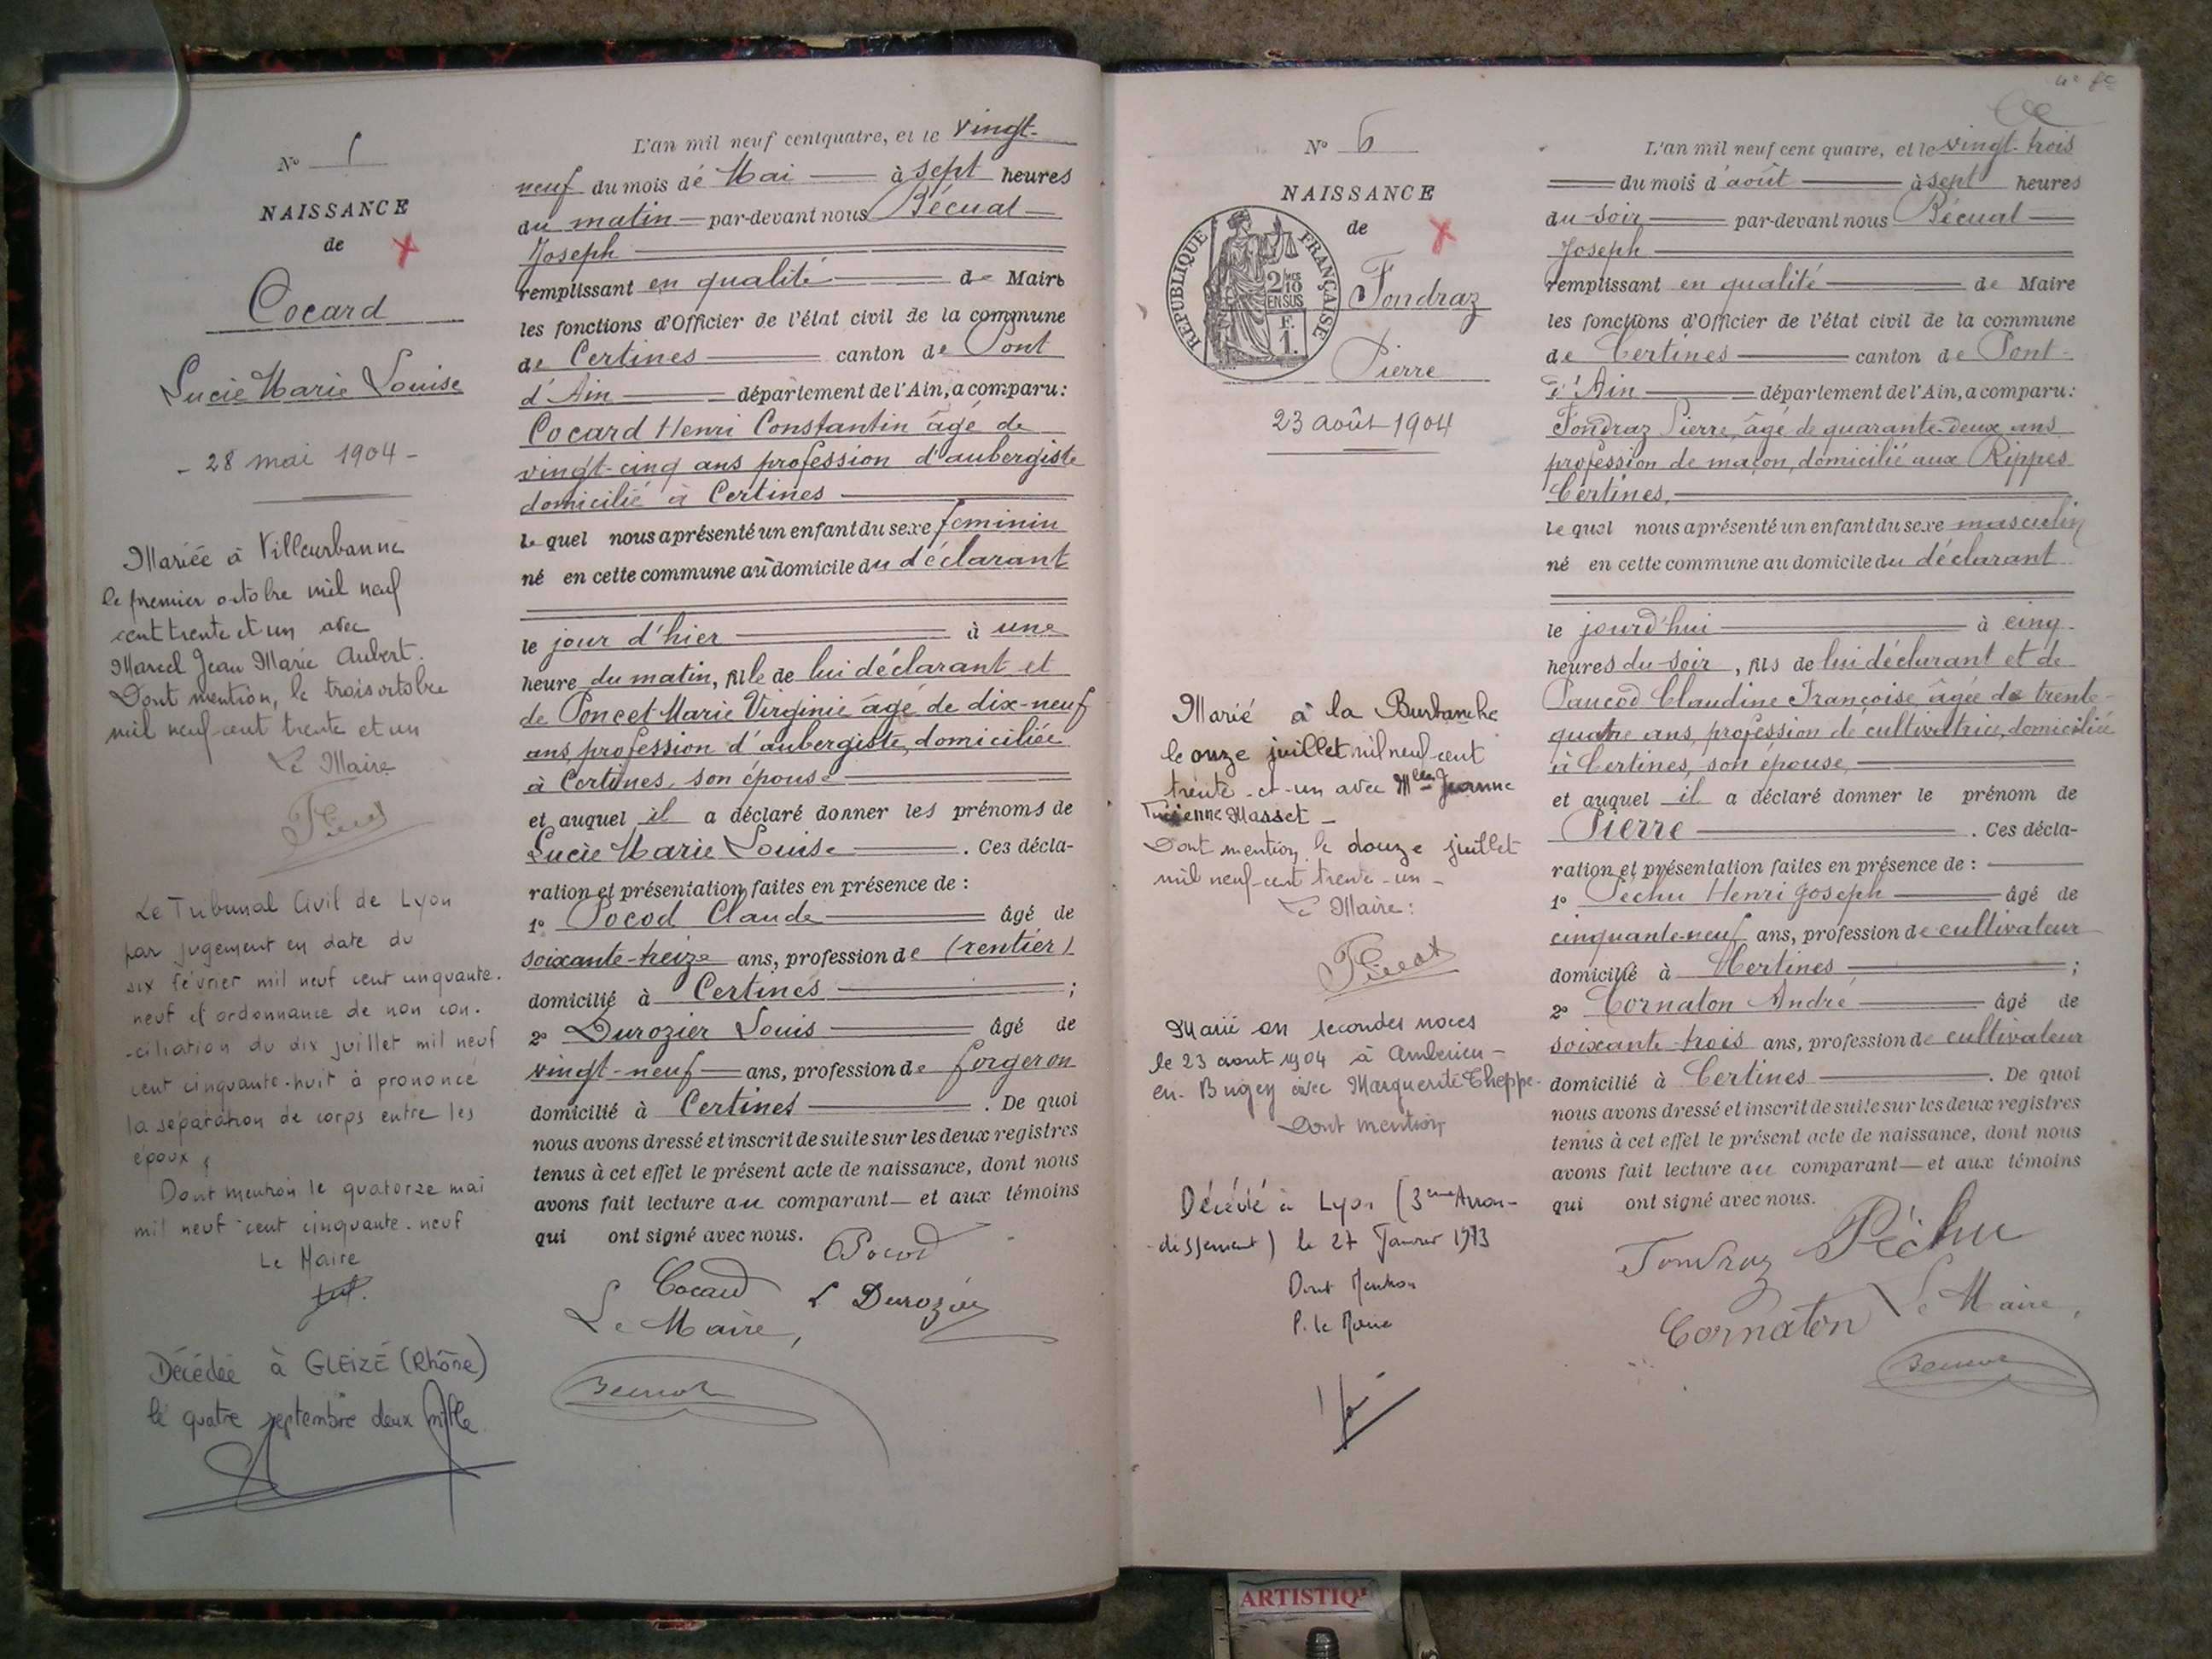 N° 5
NAISSANCE
de
Cocard
Lucie Marie Louise
- 28 mai 1904 -
Mariée à Villeurbanne
le premier octobre mil neuf
cent trente et un avec
Marcel Jean Marie Aubert.
Dont mention, le trois octobre
mil neuf cent trente et un
Le Maire
Le Tribunal Civil de Lyon
par jugement en date du
six février mil neuf cent cinquante.
neuf et ordonnance de non con.
-ciliation du dix juillet mil neuf
cent cinquante-huit à prononcé
la séparation de corps entre les
époux
Dont mention le quatorze mai
mil neuf cent cinquante-neuf
Le Maire
Décédée à GLEIZÉ (Rhône)
le quatre septembre deux mille
L'an mil neuf cent quatre, et le vingt-
neuf du mois de Mai à sept heures
du matin par-devant nous Bécuat
Joseph
remplissant en qualité de Maire
les fonctions d'Officier de l'état civil de la commune
de Certines canton de Pont
d'Ain département de l'Ain, a comparu:
Cocard Henri Constantin âgé de
vingt-cinq ans profession d'aubergiste
domicilié à Certines
le quel nous a présenté un enfant du sexe feminin
né en cette commune au domicile du déclarant
le jour d'hier à une
heure du matin, fille de lui déclarant et
de Poncet Marie Virginie âgé de dix-neuf
ans, profession d'aubergiste, domiciliée
à Certines, son épouse
et auquel il a déclaré donner les prénoms de
Lucie Marie Louise . Ces décla-
ration et présentation faites en présence de :
1° Pocod Claude âgé de
soixante-treize ans, profession de (rentier)
domicilié à Certines ;
2° Durozier Louis âgé de
vingt-neuf ans, profession de forgeron
domicilié à Certines . De quoi
nous avons dressé et inscrit de suite sur les deux registres
tenus à cet effet le présent acte de naissance, dont nous
avons fait lecture au comparant et aux témoins
qui ont signé avec nous.
Pocod
Cocard L Durozier
Le Maire,
N° 6
NAISSANCE
de
RÉPUBLIQUE FRANÇAISE
2/10 MES
EN SUS
F.
1.
Fondraz
Pierre
23 août 1904
Marié à la Burbanche
le onze juillet mil neuf cent
trente-et-un avec Mlle Jeanne
Masset -
Dont mention, le douze juillet
mil neuf-cent trente-un -
Le Maire :
Marié en secondes noces
le 23 aout 1904 à Ambérieu-
en-Bugey avec Marguerite Theppe-
Dont mention
Décédé à Lyon (3eme Arron-
-dissement) le 27 Janvier 1973
Dont Mention
P. le Maire
L'an mil neuf cent quatre, et le vingt-trois
du mois d'août à sept heures
du soir par-devant nous Bécuat
Joseph
remplissant en qualité de Maire
les fonctions d'Officier de l'état civil de la commune
de Certines canton de Pont-
d'Ain département de l'Ain, a comparu:
Fondraz Pierre, âgé de quarante-deux ans
profession de maçon, domicilié aux Rippes
Certines,
le quel nous a présenté un enfant du sexe masculin
né en cette commune au domicile du déclarant
le jourd'hui à cinq
heures du soir, fils de lui déclarant et de
Claudine Françoise, âgée de trente-
quatre ans, profession de cultivatrice, domiciliée
à Certines, son épouse,
et auquel il a déclaré donner le prénom de
Pierre . Ces décla-
ration et présentation faites en présence de :
1° Péchu Henri Joseph âgé de
cinquante-neuf ans, profession de cultivateur
domicilié à Certines ;
2° Cornaton André âgé de
soixante-trois ans, profession de cultivateur
domicilié à Certines . De quoi
nous avons dressé et inscrit de suite sur les deux registres
tenus à cet effet le présent acte de naissance, dont nous
avons fait lecture au comparant et aux témoins
qui ont signé avec nous.
Fondraz Péchu
Cornaton Le Maire,
ARTISTIQ